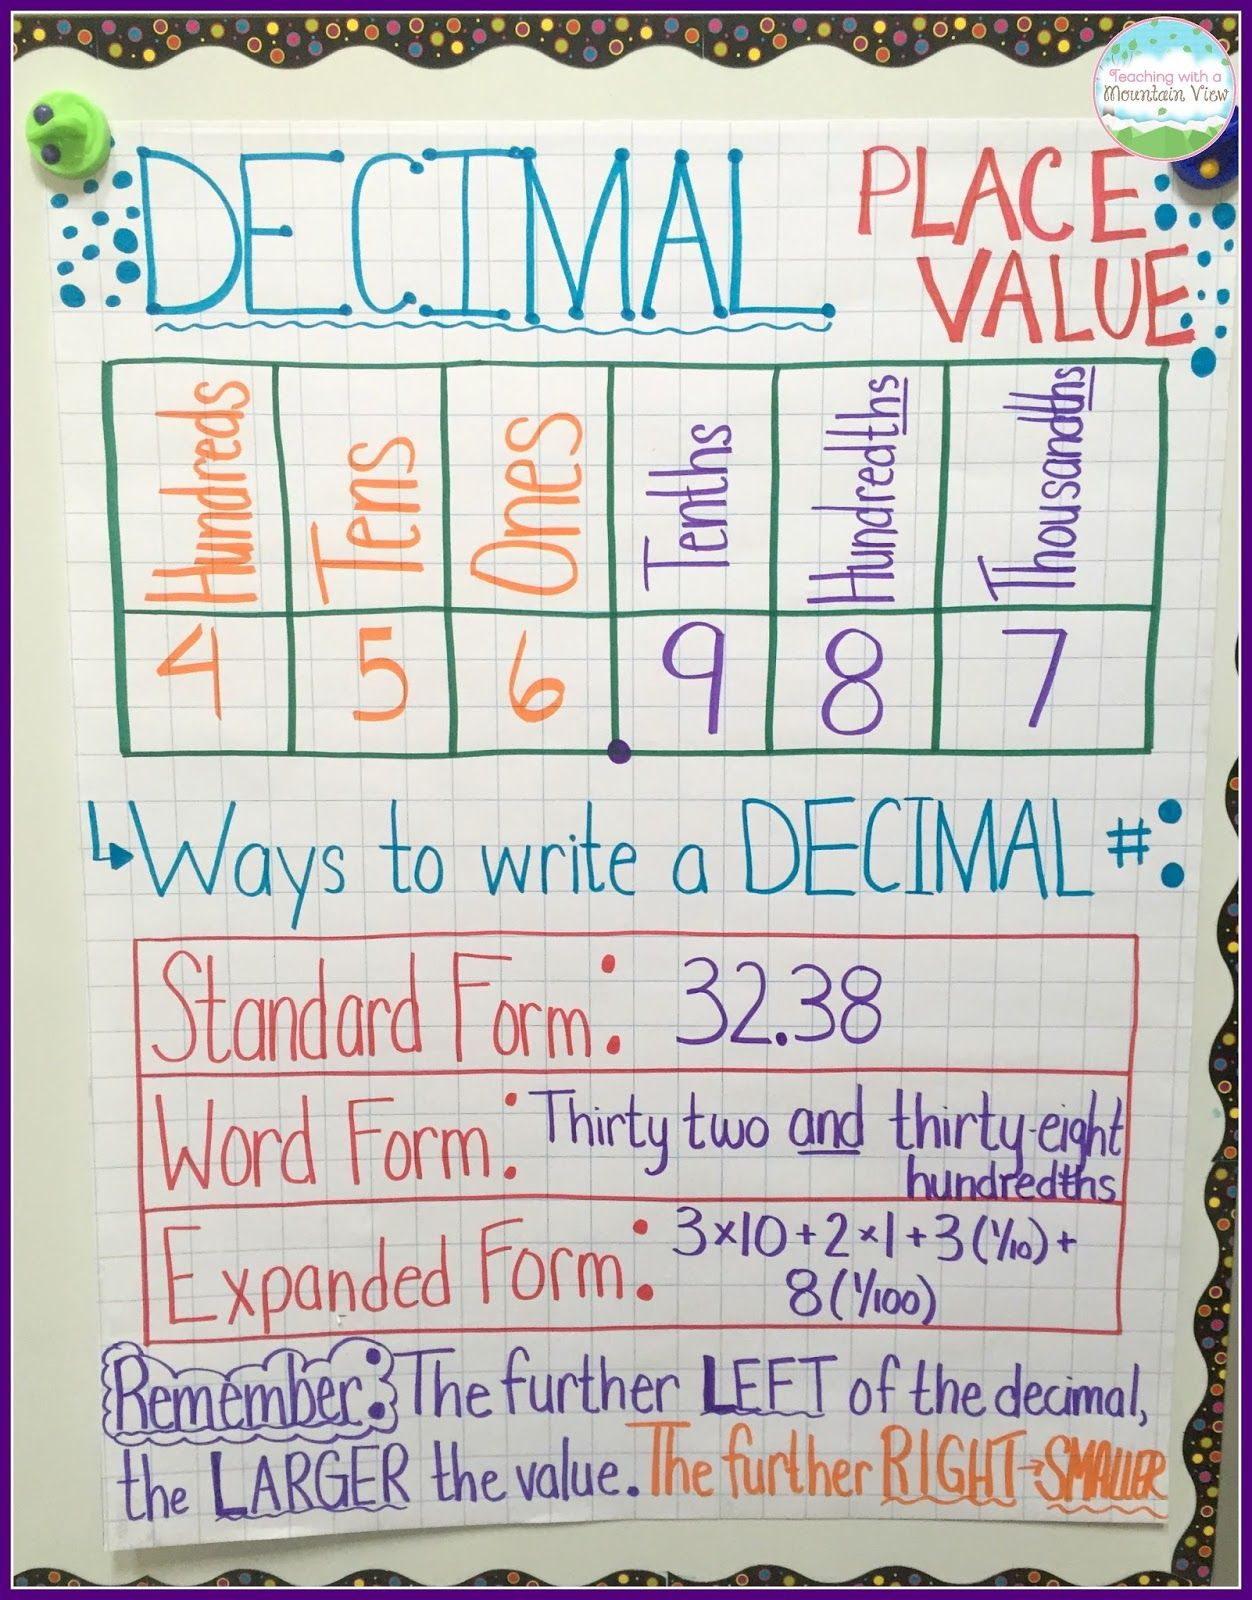 Teaching with a
Mountain View
DECIMAL
PLACE
VALUE
Hundreds Tens Ones Tenths Hundredths Thousandths
4 5 6 . 9 8 7
Ways to write a DECIMAL #:
Standard Form: 32.38
Word Form: Thirty two and thirty-eight
hundredths
Expanded Form: 3×10+2×1+3(1/10)+
8(1/100)
Remember: The further LEFT of the decimal,
the LARGER the value. The further RIGHT→SMALLER